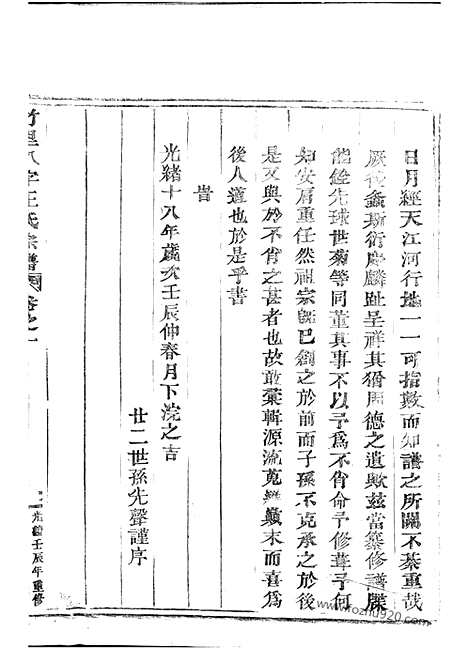 日月經天江河行地一一可指數而知譜之所關不綦重哉
厥後螽斯衍慶麟趾呈祥其猶周德之遺歟茲當纂修譜牒
能銓先球世菊等同董其事不以予為不肖命予修葺予何
如安肩重任然祖宗既已創之於前而子孫不克承之於後
是又與於不肖之甚者也故敢彙輯源流蒐顛末而喜為
後人道也於是乎書
旹
光緒十八年歲次壬辰仲春月下浣之吉
廿二世孫先聲謹序
竹里八字王氏宗譜卷之一
光緒壬辰年重修
www.fozhu920.com